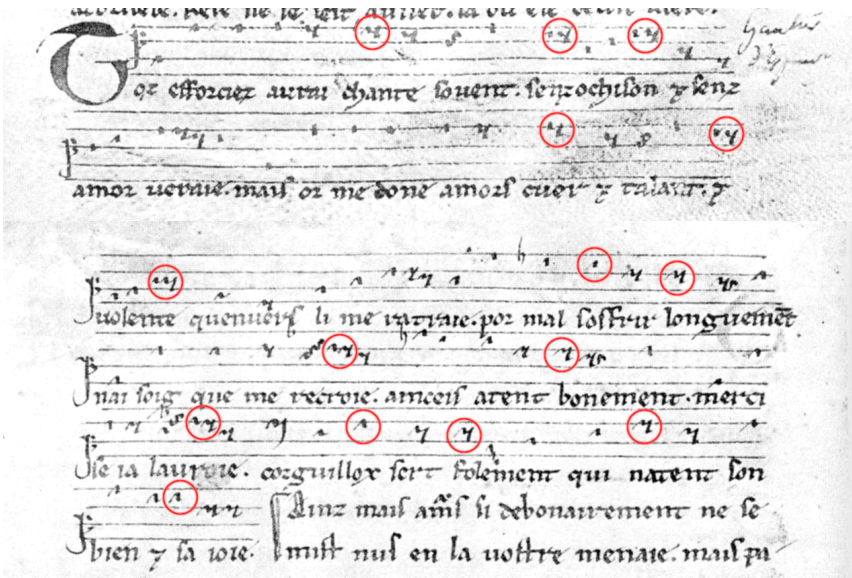 Or efforcier autrui chante sovent. senz ochison ⁊ senz
amor veraie. mais or me done amors cuer ⁊ talant. ⁊
volente quenvers li me ratraie. por mal soffrir longuemēt
nai soig que me recroie. ainceis atent bonement. merci
se ia lauroie. corguillox sert folement qui natent son
bien ⁊ sa ioie. Ainz mais ams si debonairement ne se
mist nus en la vostre menaie. mais pa